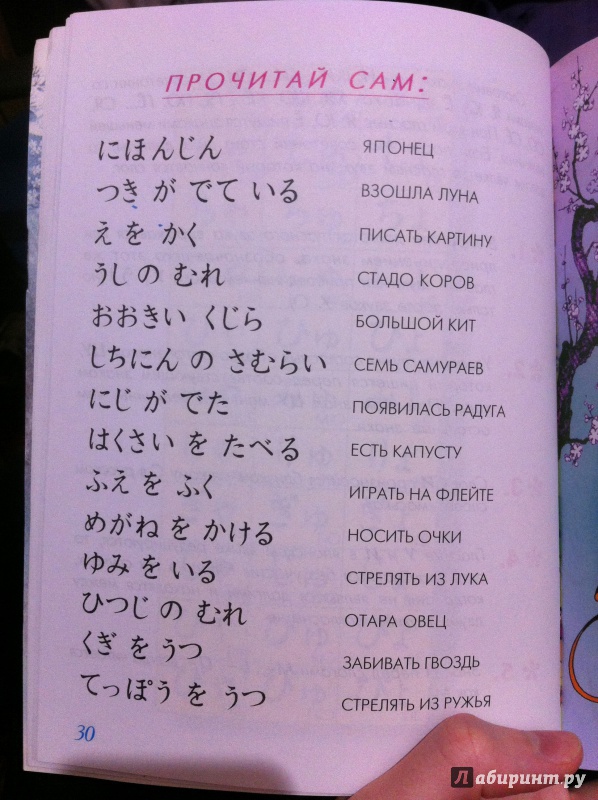 ПРОЧИТАЙ САМ:
にほんじん ЯПОНЕЦ
つき が でて いる ВЗОШЛА ЛУНА
え を かく ПИСАТЬ КАРТИНУ
うし の むれ СТАДО КОРОВ
おおきい くじら БОЛЬШОЙ КИТ
しちにん の さむらい СЕМЬ САМУРАЕВ
にじ が でた ПОЯВИЛАСЬ РАДУГА
はくさい を たべる ЕСТЬ КАПУСТУ
ふえ を ふく ИГРАТЬ НА ФЛЕЙТЕ
めがね を かける НОСИТЬ ОЧКИ
ゆみ を いる СТРЕЛЯТЬ ИЗ ЛУКА
ひつじ の むれ ОТАРА ОВЕЦ
くぎ を うつ ЗАБИВАТЬ ГВОЗДЬ
てっぽう を うつ СТРЕЛЯТЬ ИЗ РУЖЬЯ
30
лабиринт.ру